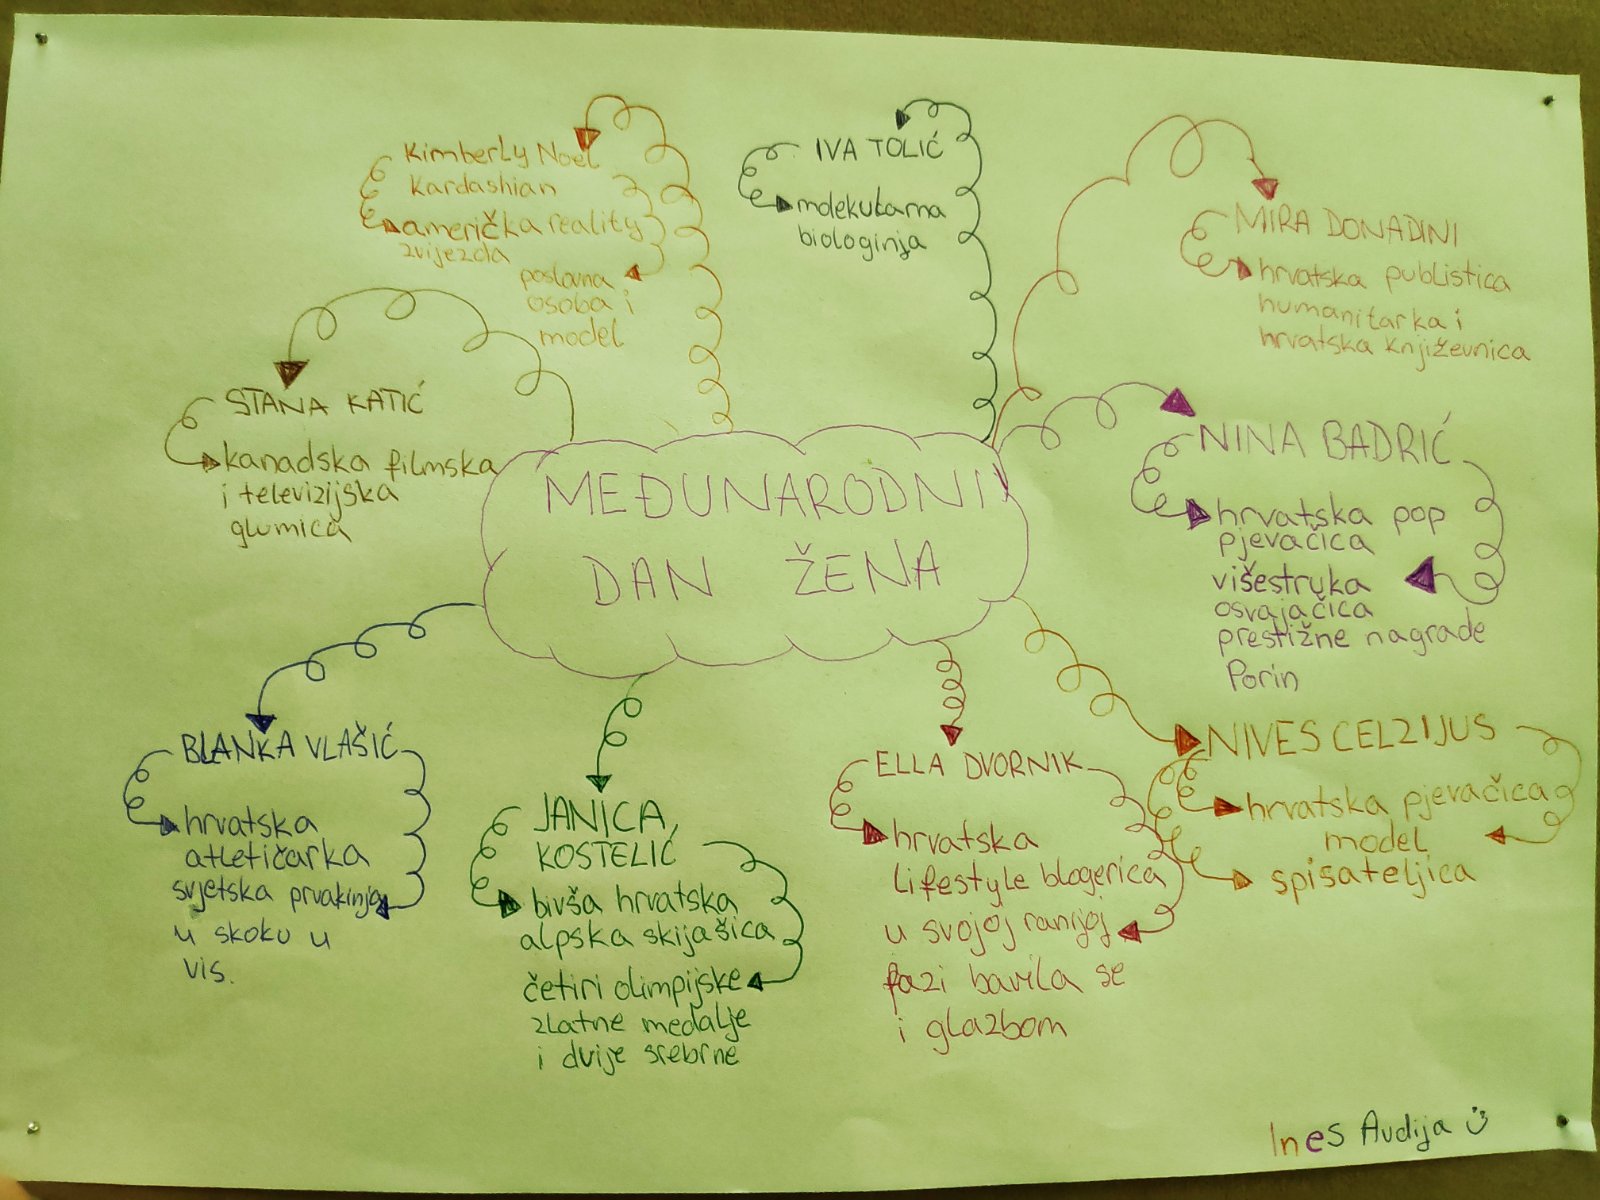 MEĐUNARODNI
DAN ŽENA
Kimberly Noel
Kardashian
američka reality
zvijezda
poslovna
osoba i
model
IVA TOLIĆ
molekularna
biologinja
MIRA DONADINI
hrvatska publistica
humanitarka i
hrvatska književnica
STANA KATIĆ
kanadska filmska
i televizijska
glumica
NINA BADRIĆ
hrvatska pop
pjevačica
višestruka
osvajačica
prestižne nagrade
Porin
BLANKA VLAŠIĆ
hrvatska
atletičarka
svjetska prvakinja
u skoku u
vis.
JANICA
KOSTELIĆ
bivša hrvatska
alpska skijašica
četiri olimpijske
zlatne medalje
i dvije srebrne
ELLA DVORNIK
hrvatska
lifestyle blogerica
u svojoj ranijoj
fazi bavila se
i glazbom
NIVES CELZIJUS
hrvatska pjevačica
model
spisateljica
Ines Avdija